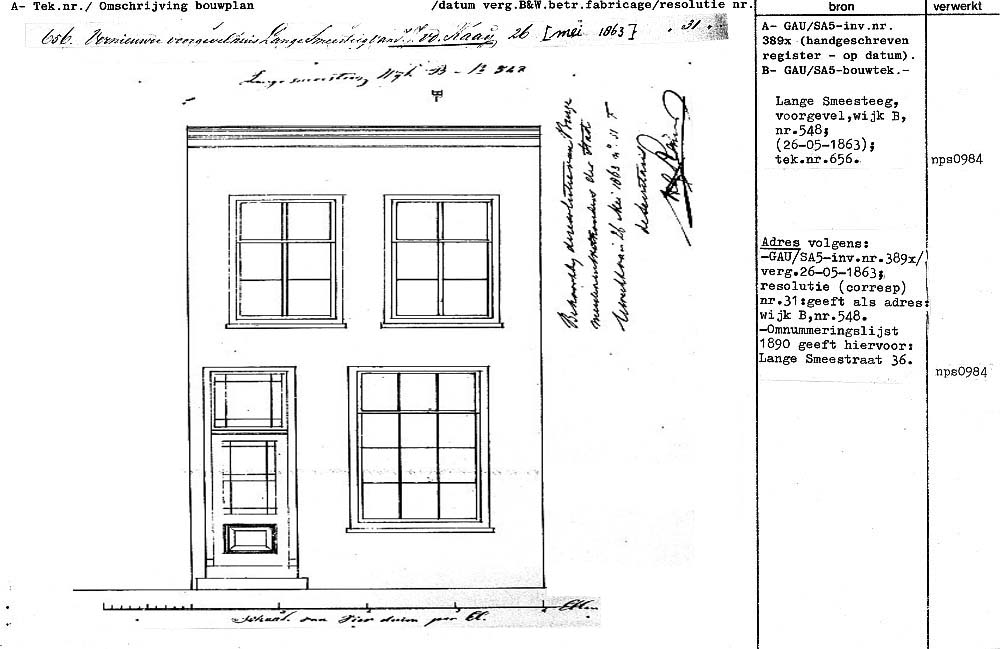 A- Tek.nr./ Omschrijving bouwplan /datum verg.B&W.betr.fabricage/resolutie nr.
bron
verwerkt
656. Vernieuwen voorgevel huis Lange Smeesteeg van J. v.d. Kaay 26 [mei 1863] . 31 .
Lange smeesteeg Wijk B -
de Secretaris
Schaal van Vier duim per El.
Ellen
A- GAU/SA5-inv.nr.
389x (handgeschreven
register - op datum).
B- GAU/SA5-bouwtek.-
Lange Smeesteeg,
voorgevel,wijk B,
nr.548;
(26-05-1863);
tek.nr.656.
nps0984
Adres volgens:
-GAU/SA5-inv.nr.389x/
verg.26-05-1863;
resolutie (corresp)
nr.31:geeft als adres:
wijk B,nr.548.
-Omnummeringslijst
1890 geeft hiervoor:
Lange Smeestraat 36.
nps0984